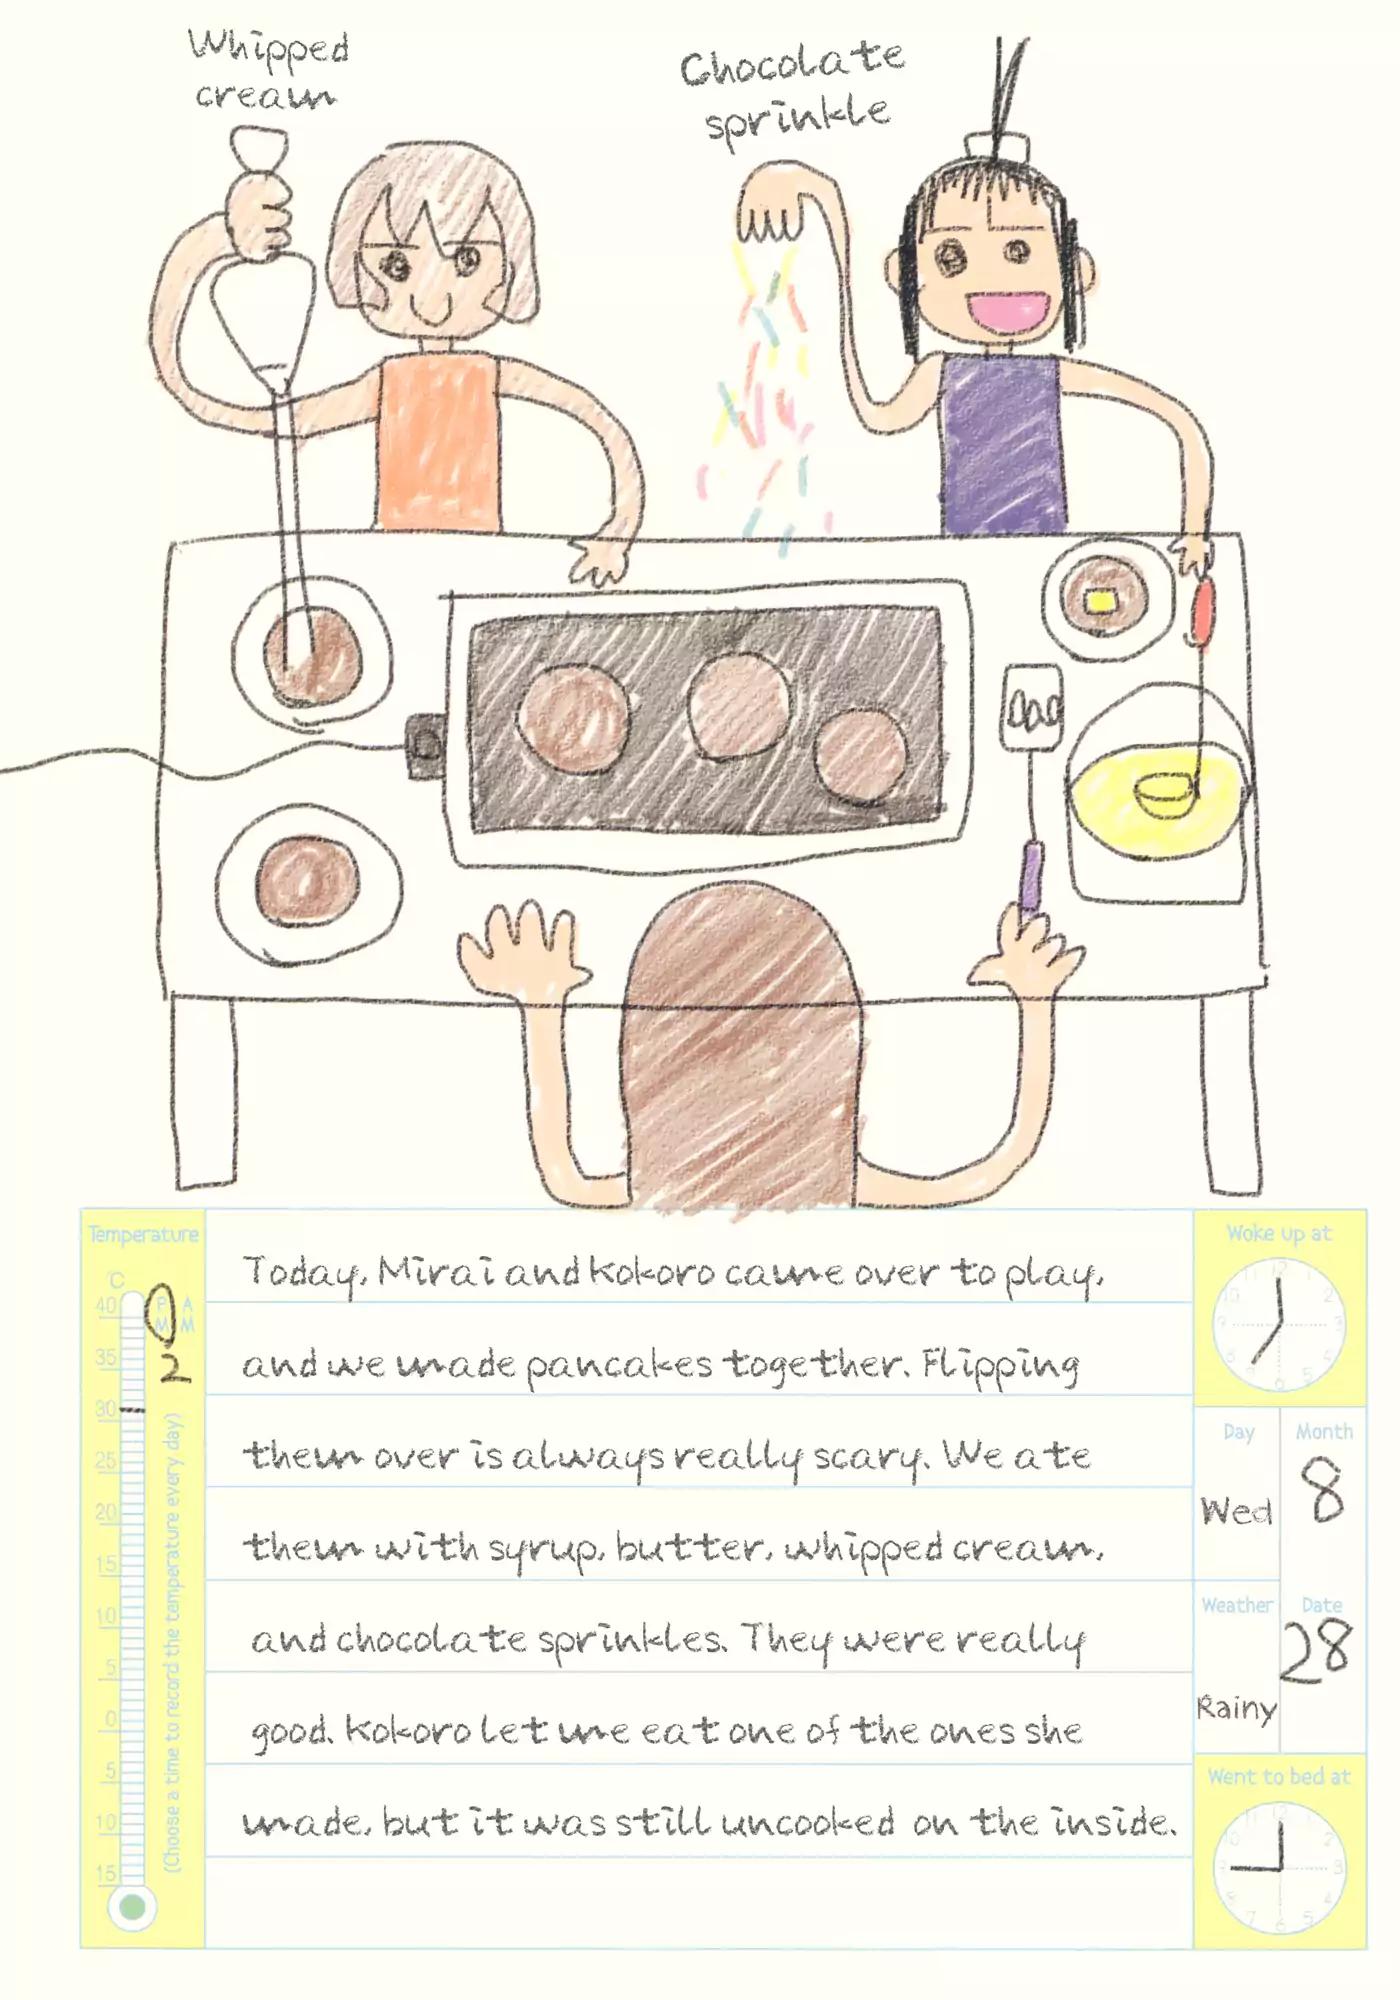 Whipped
cream
Chocolate
sprinkle
Temperature
°C
PM AM
2
40
35
30
25
20
15
10
5
0
5
10
15
(Choose a time to record the temperature every day)
Today, Mirai and Kokoro came over to play,
and we made pancakes together. Flipping
them over is always really scary. We ate
them with syrup, butter, whipped cream,
and chocolate sprinkles. They were really
good. Kokoro let me eat one of the ones she
made, but it was still uncooked on the inside.
Woke up at
Day
Wed
Month
8
Weather
Rainy
Date
28
Went to bed at